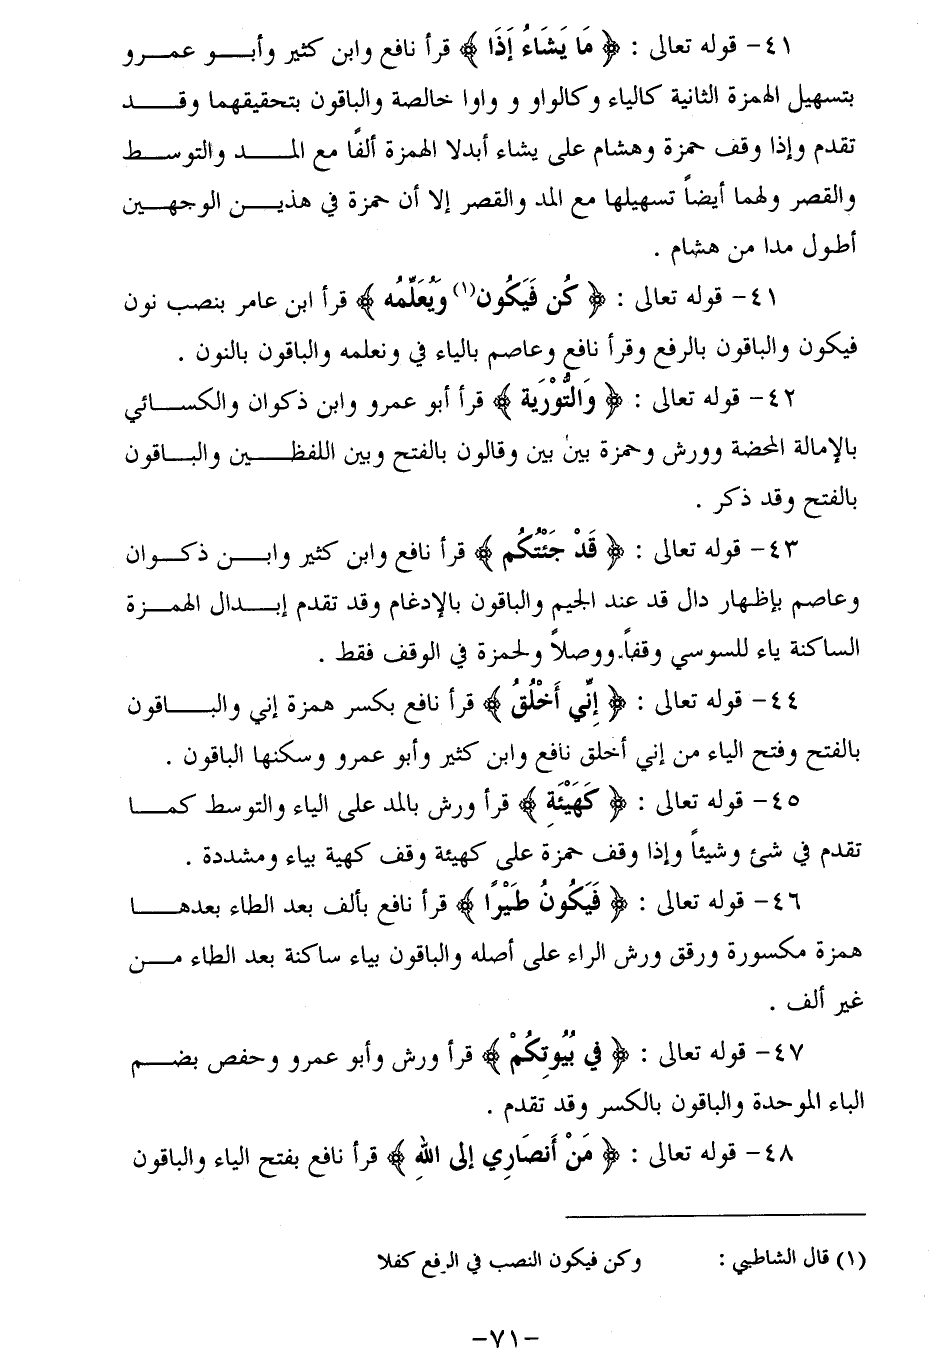 ٤١- قوله تعالى : ﴿ مَا يَشَاءُ إِذَا ﴾ قرأ نافع وابن كثير وأبو عمرو
بتسهيل الهمزة الثانية كالياء وكالواو و واوا خالصة والباقون بتحقيقهما وقد
تقدم وإذا وقف حمزة وهشام على يشاء أبدلا الهمزة ألفًا مع المد والتوسط
والقصر ولهما أيضاً تسهيلها مع المد والقصر إلا أن حمزة في هذين الوجهين
أطول مدا من هشام .
٤١- قوله تعالى : ﴿ كُن فَيَكُون(١) وَيُعَلِّمُه ﴾ قرأ ابن عامر بنصب نون
فيكون والباقون بالرفع وقرأ نافع وعاصم بالياء في ونعلمه والباقون بالنون .
٤٢- قوله تعالى : ﴿ وَالتُّوْرَية ﴾ قرأ أبو عمرو وابن ذكوان والكسائي
بالإمالة المحضة وورش وحمزة بين بين وقالون بالفتح وبين اللفظين والباقون
بالفتح وقد ذكر .
٤٣- قوله تعالى : ﴿ قَدْ جَئْتُكُم ﴾ قرأ نافع وابن كثير وابن ذكوان
وعاصم بإظهار دال قد عند الجيم والباقون بالإدغام وقد تقدم إبدال الهمزة
الساكنة ياء للسوسي وقفاً ووصلاً ولحمزة في الوقف فقط .
٤٤- قوله تعالى : ﴿ إِنِّي أَخْلُقُ ﴾ قرأ نافع بكسر همزة إني والباقون
بالفتح وفتح الياء من إني أخلق نافع وابن كثير وأبو عمرو وسكنها الباقون .
٤٥- قوله تعالى : ﴿ كَهَيْئَةِ ﴾ قرأ ورش بالمد على الياء والتوسط كما
تقدم في شئ وشيئاً وإذا وقف حمزة على كهيئة وقف كهية بياء ومشددة .
٤٦- قوله تعالى : ﴿ فَيَكُونُ طَيْرًا ﴾ قرأ نافع بألف بعد الطاء بعدها
همزة مكسورة ورقق ورش الراء على أصله والباقون بياء ساكنة بعد الطاء من
غير ألف .
٤٧- قوله تعالى : ﴿ في بُيُوتِكُمْ ﴾ قرأ ورش وأبو عمرو وحفص بضم
الباء الموحدة والباقون بالكسر وقد تقدم .
٤٨- قوله تعالى : ﴿ مَنْ أَنصَارِي إلى اللهِ ﴾ قرأ نافع بفتح الياء والباقون
(١) قال الشاطبي : وكن فيكون النصب في الرفع كفلا
-٧١-